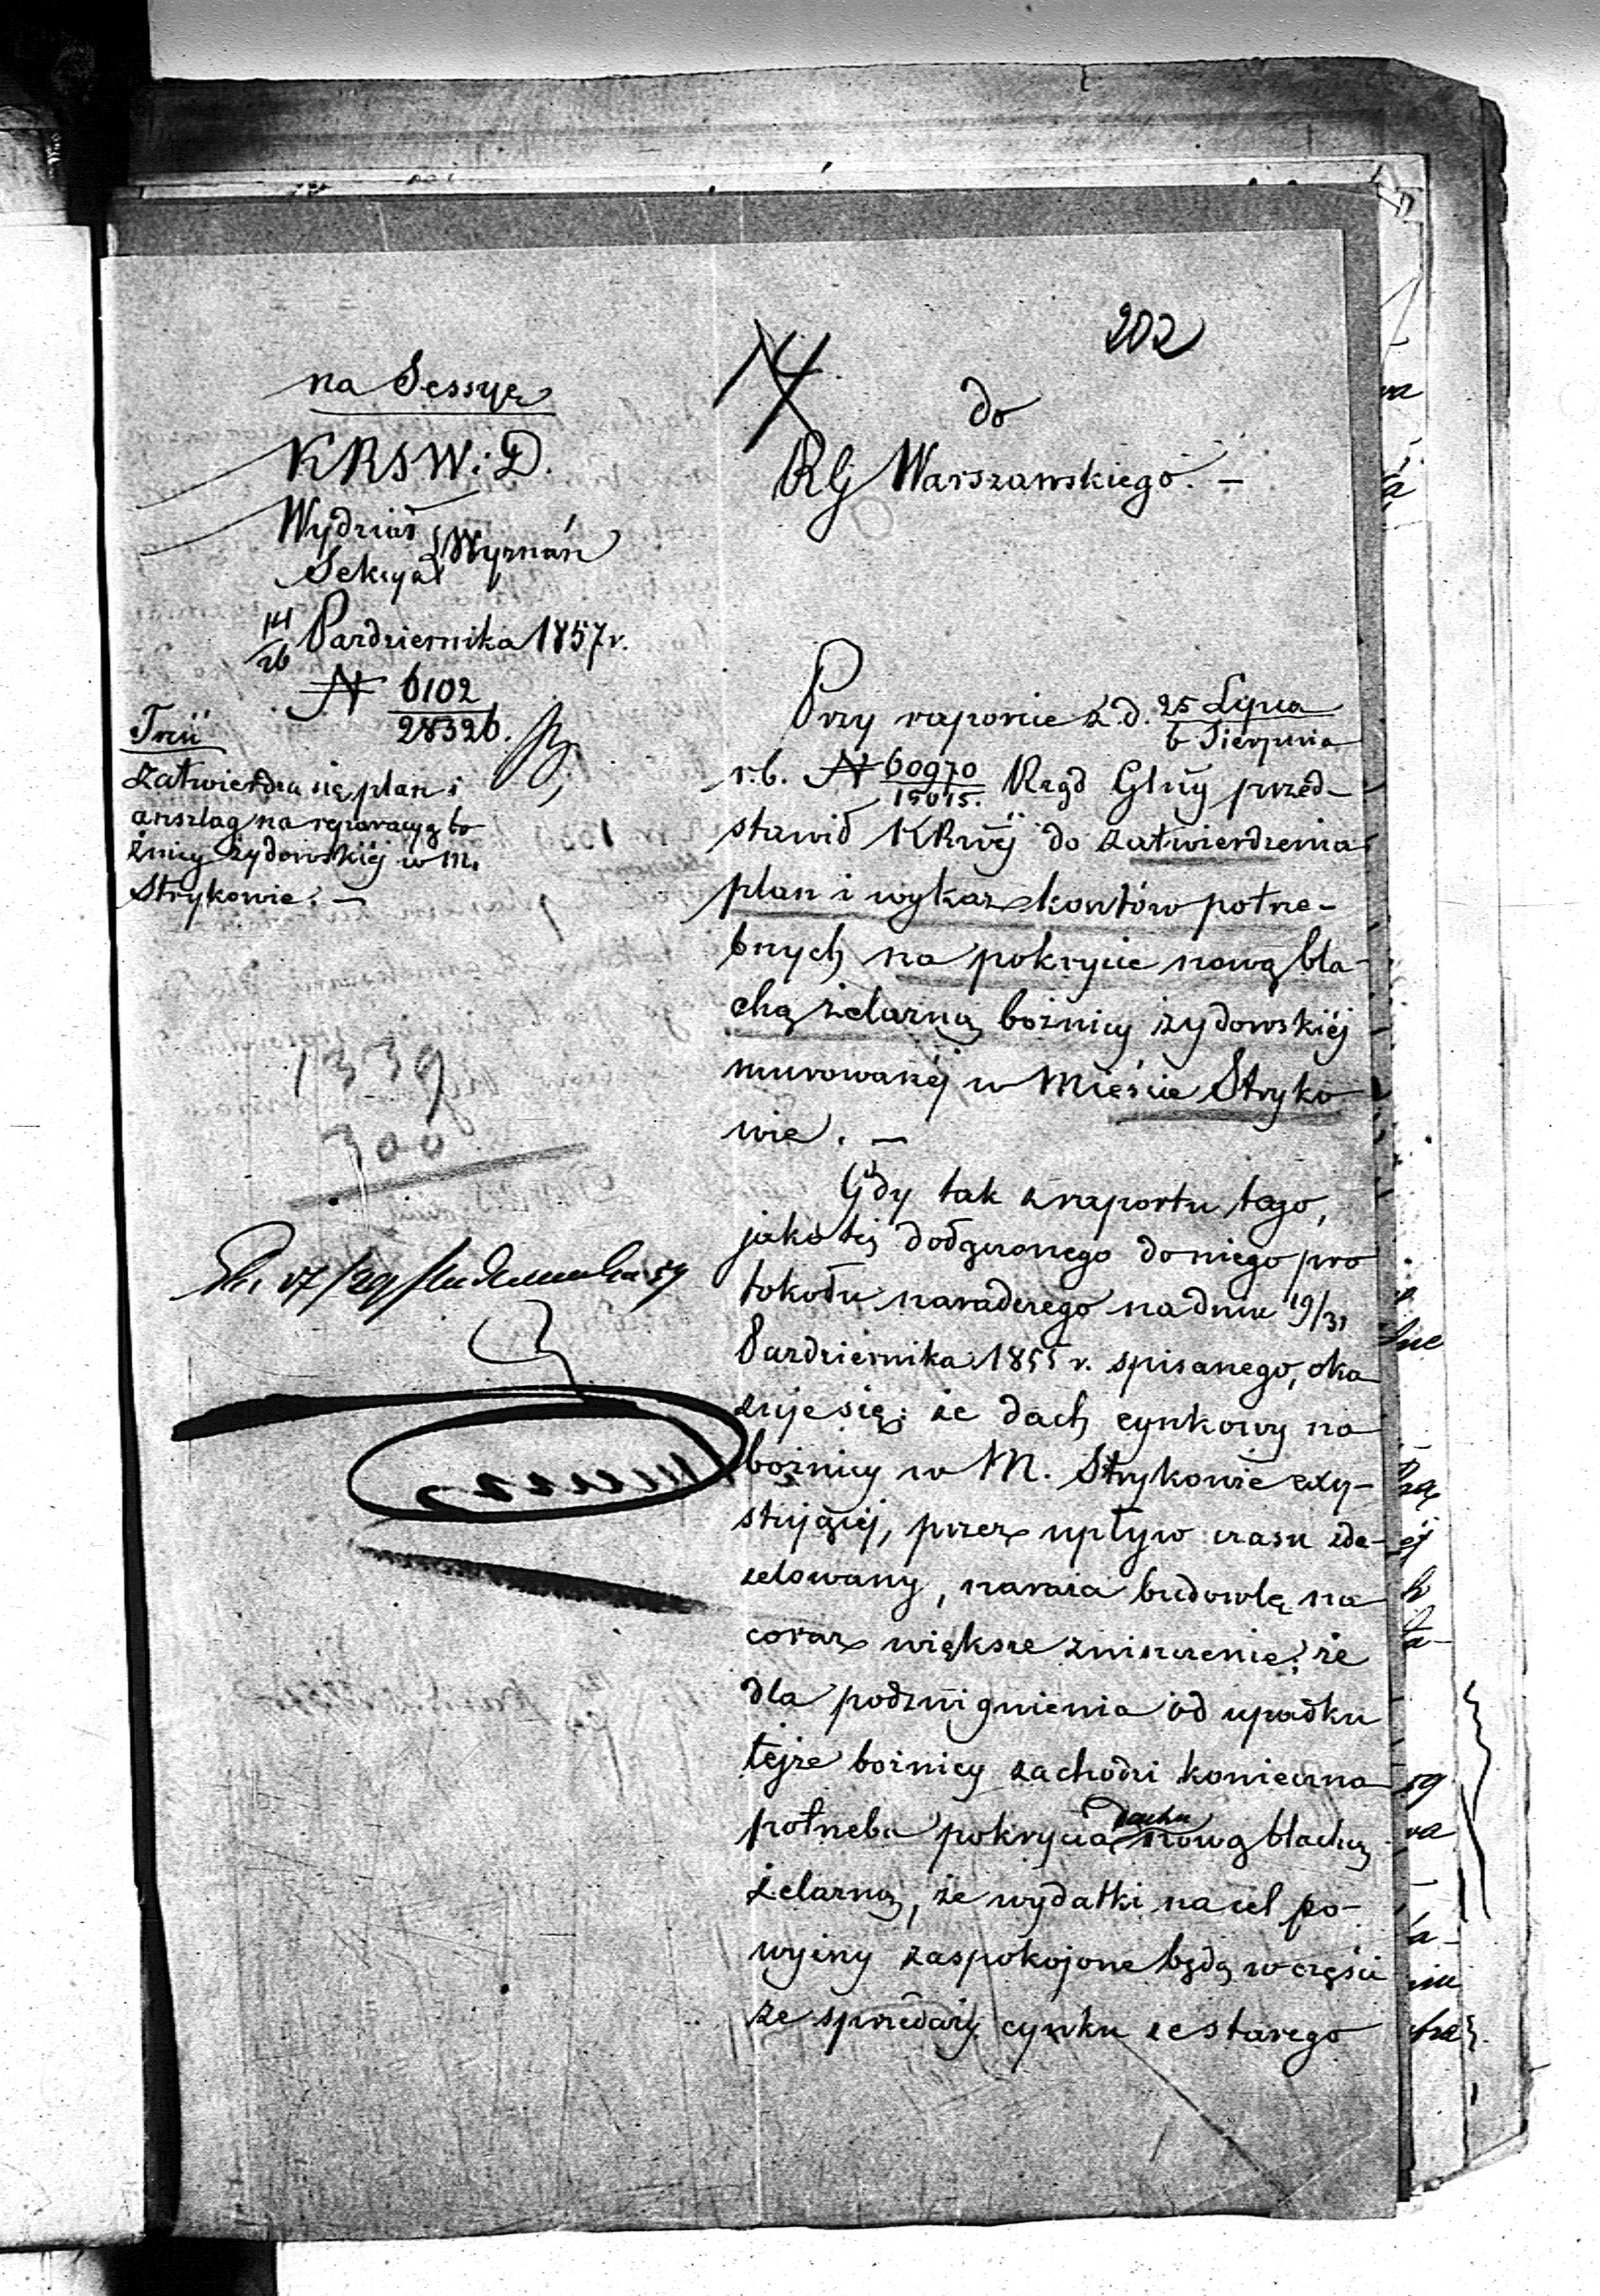 202
na Sessyę
KRSW i D.
Wydział
Sekcya } Wyznań
14/26 Pazdziernika 1857 r.
N 6102/28326.
Treść
Zatwierdza się plan i
anszlag na reparacyą bo
żnicy żydowskiéj w m.
Strykowie. —
1339
300
do
RG Warszawskiego. —
Przy raporcie z d. 25 Lipca/6 Sierpnia
r. b. N 60970/15015. Rząd Glny przed-
stawił KRwéj do zatwierdzenia
plan i wykaz kosztów potrze-
bnych na pokrycie nową bla-
chą żelazną bożnicy żydowskiéj
murowanéj w Mieście Stryko
wie. —
Gdy tak z raportu tego,
jako też dołączonego do niego pro
tokółu naradczego na dniu 19/31
Pazdziernika 1855 r. spisanego, oka
zuje się: że dach cynkowy na
bożnicy w M. Strykowie exy-
stującéj, przez upływ czasu zde-
zelowany, naraża budowlę na
coraz większe zniszczenie; że
dla podzwignienia od upadku
tejże bożnicy zachodzi konieczna
potrzeba pokrycia dachu nową blachą
żelazną, że wydatki na cel po-
wyższy zaspokojone będą w części
ze sprzedaży cynku ze starego